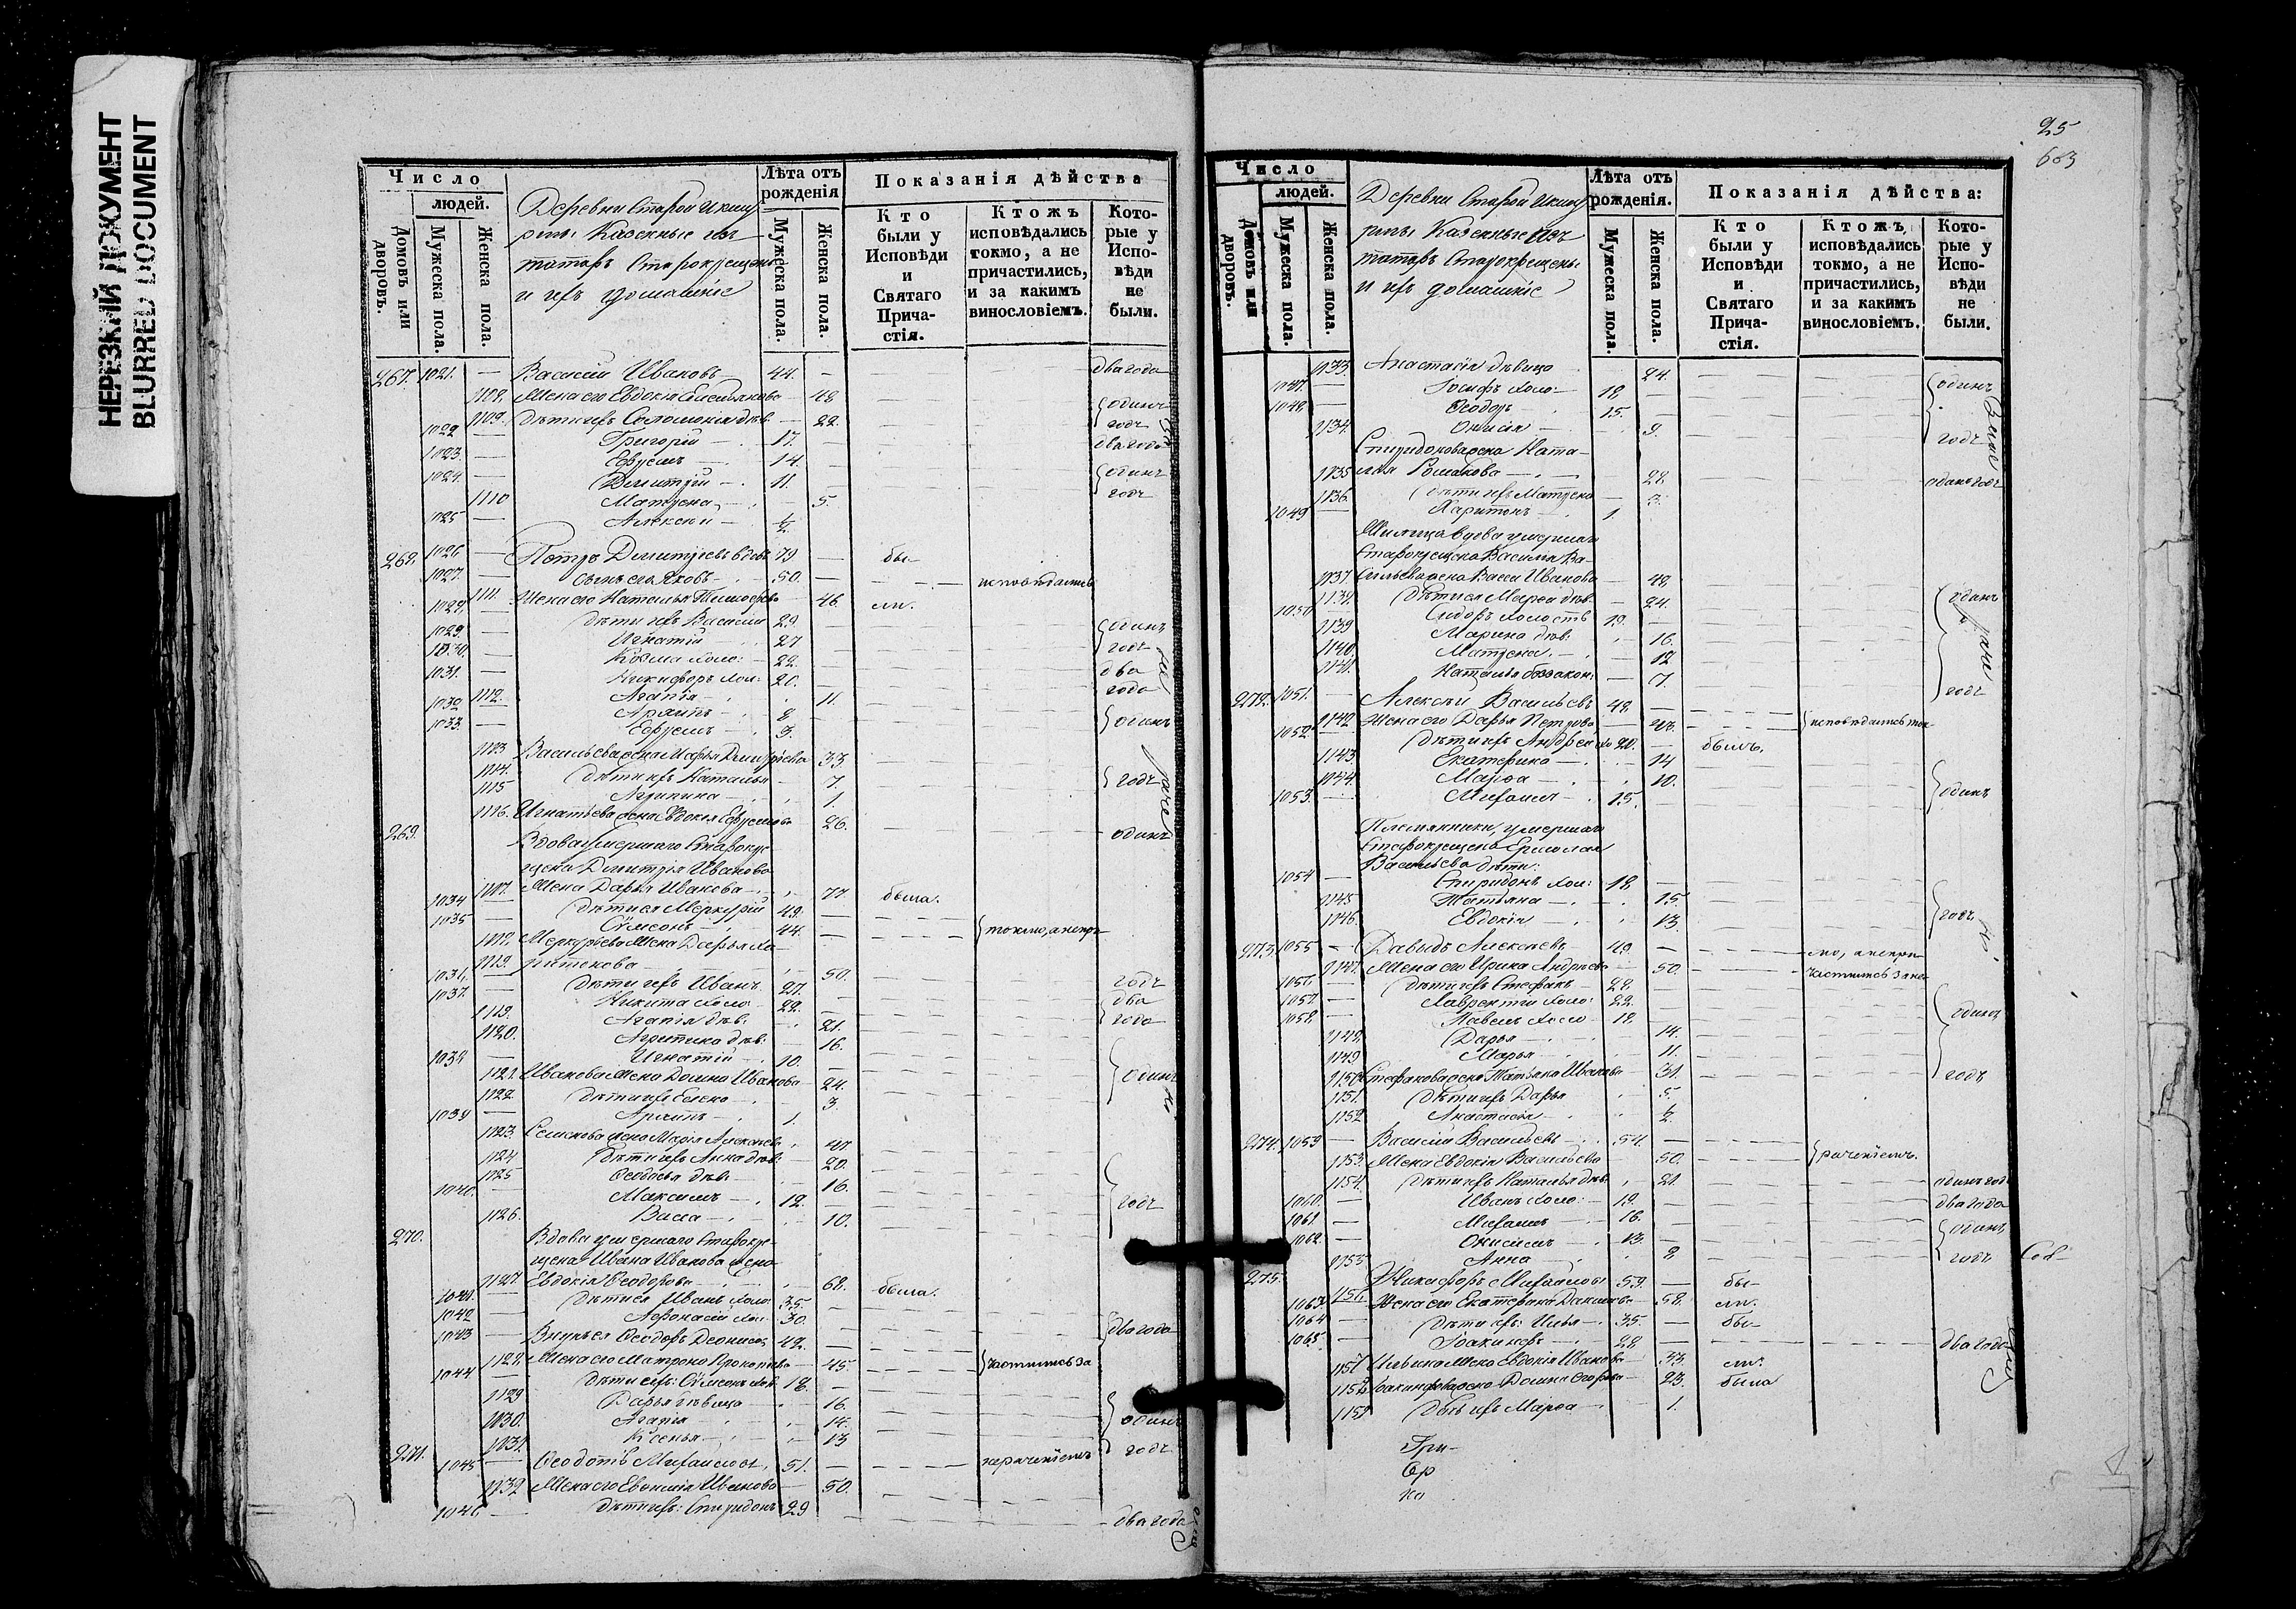 НЕРЕЗКИЙ ДОКУМЕНТ
BLURRED DOCUMENT
Число
людей.
Домовъ или дворовъ.
Мужеска пола.
Женска пола.
Деревни Старой Икшур
мы Казенные изъ
татаръ Старокрещены
и ихъ домашніе
Лѣта отъ рожденія
Мужеска пола.
Женска пола.
Показанія дѣйства
Кто были у Исповѣди и Святаго Прича-стія.
Ктожъ исповѣдались токмо, а не причастились, и за какимъ винословіемъ.
Кото-рые у Испо-вѣди не были.
267. 1021. — Василій Ивановъ 44. — два года
1108. Жена его Евдокія 48 одинъ
1109. Дѣти ихъ Соломонія дѣв. 22. годъ
1022 — Григорій — 17. два года
1023. — Ефремъ — 14.
1024. — Димитрій — 11. одинъ
1110 Матрена — 5. годъ
1025 — Алексѣй — ½
268. 1026 — Петръ Димитріевъ вдовъ 79 — бы-
1027. — сынъ его Яковъ — 50. — исповѣдались
1111. Жена его Наталья Тимофеева 46. ли.
1028. — дѣти ихъ Василій 29.
1029. — Игнатій 27 одинъ
1030. — Козма холо: 22. годъ
1031. — Никифоръ хол: 20. два
1112. Агапія — 11. года
1032 — Архипъ — 8
1033. — Ефремъ — 3. одинъ
1113 Васильева жена Марья Димитріева 33
1114. дѣти ихъ Наталья 7. годъ
1115 Агрипина 1.
1116. Игнатьева жена Евдокія Ефремова 26.
269. Вдова умершаго Старокре
щена Димитрія Иванова
1117. Жена Дарья Иванова — 77. была.
1034 — дѣти ея Меркурій 49.
1035 — Сѵмеонъ — 44. токмо, а непри-
1118. Меркурьева жена Дарья Ха-
ритонова — 50.
1036. — дѣти ихъ Иванъ 27. годъ
1037. — Никита холо: 22. два
1119. Агапія дѣв: 21. года
1120. Агрипина дѣв: 16.
1038 — Игнатій 10.
1121. Иванова жена Домна Иванова 24. одинъ
1122 дѣти ихъ Елена 3.
1039 Архипъ — 1.
1123. Семенова жена Марія Алексѣева 41
1124 дѣти ихъ Анна дѣв: 20.
1125 Ѳеодосья дѣв: 16.
1040. — Максимъ — 12. годъ
1126. Васса — 10.
270. Вдова умершаго Старокре-
щена Ивана Иванова жена
1127. Евдокія Ѳеодорова — 68. была.
1041. — дѣти ея Иванъ холо: 35.
1042 — Афонасій хол: 30.
1043 — Внукъ ея Ѳеодоръ 42. два года
1128. Жена его Матрона Прокопьева 45. частились за
1044 — дѣти ихъ: Сѵмеонъ хол: 18.
1129 Дарья дѣвица 16.
1130. Агапія 14. одинъ
1131. Ксенья 13 годъ
271. 1045 — Ѳеодотъ Михайловъ 51. нераченіемъ
1132 Жена его Евфимія Иванова 50.
1046 — дѣти ихъ: Спиридонъ 29 два года
25
603
Число
людей.
Домовъ или дворовъ.
Мужеска пола.
Женска пола.
Деревни Старой Икшур
мы Казенные изъ
татаръ Старокрещены
и ихъ домашніе
Лѣта отъ рожденія.
Мужеска пола.
Женска пола.
Показанія дѣйства:
Кто были у Исповѣди и Святаго Прича-стія.
Ктожъ исповѣдались токмо, а не причастились, и за какимъ винословіемъ.
Кото-рые у Испо-вѣди не были.
1133. Анастасія дѣвица 24.
1047. — Іосифъ холо: 18 одинъ
1048. — Ѳеодоръ 15.
1134. 9. годъ
Спиридонова жена Ната-
1135 лія Романова — 28. одинъ годъ
1136. дѣти ихъ Матрена 3.
1049 — Харитонъ 1.
вдова умершаго
Старокрещена Василія Ва-
1137. сильева жена Васса Иванова 48.
1138. Дѣти ея Марѳа дѣв. 24. одинъ
1050 — Сидоръ холостъ 19.
1139 Марина дѣв: 16.
1140. Матрена 12
1141. Наталья беззакон: 7. годъ
272. 1051. — Алексѣй Васильевъ 48.
1142 Жена его Дарья Петрова исповѣдались ток-
1052 — Дѣти ихъ Андрей хо 20. былъ.
1143. Екатерина — 14
1144. Марѳа — 10.
1053. — Михаилъ 15. одинъ
Племянники, умершаго
Старокрещена Ермолая
Васильева дѣти:
1054 — Спиридонъ хол: 18
1145 Татьяна — 15.
1146. Евдокія 13 годъ
273. 1055 — Давыдъ Алексѣевъ 49. мо, а непри-
1147. Жена его Ирина Андреева 50. частились за не-
1056 — дѣти ихъ Стефанъ 28.
1057. — Лаврентій холо: 22.
1058. — Павелъ холо 18. одинъ
1148. Дарья 14.
1149 Марья 11.
1150. Стефанова жена Татьяна Иванова 31. годъ
1151. Дѣти ихъ Дарья 5.
1152 Анастасія ½
274. 1059 — Василій Васильевъ 54. —
1153. Жена Евдокія Васильева 50. раченіемъ.
1154. дѣти ихъ Наталья дѣв. 21. одинъ годъ
1060. — Иванъ холо: 19. два года
1061. — Михаилъ 16. одинъ
1062. — Онисимъ 13.
1155 Анна 8 годъ
275. Никифоръ Михайловъ 59. — бы-
1156 Жена его Екатерина 58. ли.
1063 1064 — дѣти ихъ: Илья 35. — бы-
1065. — Іоакимъ 28 два года
1157 Ильина жена Евдокія Иванова 33. ли.
1158. жена Домна 23. была
1159 дочь ихъ Марѳа 1.
Соб
Гри-